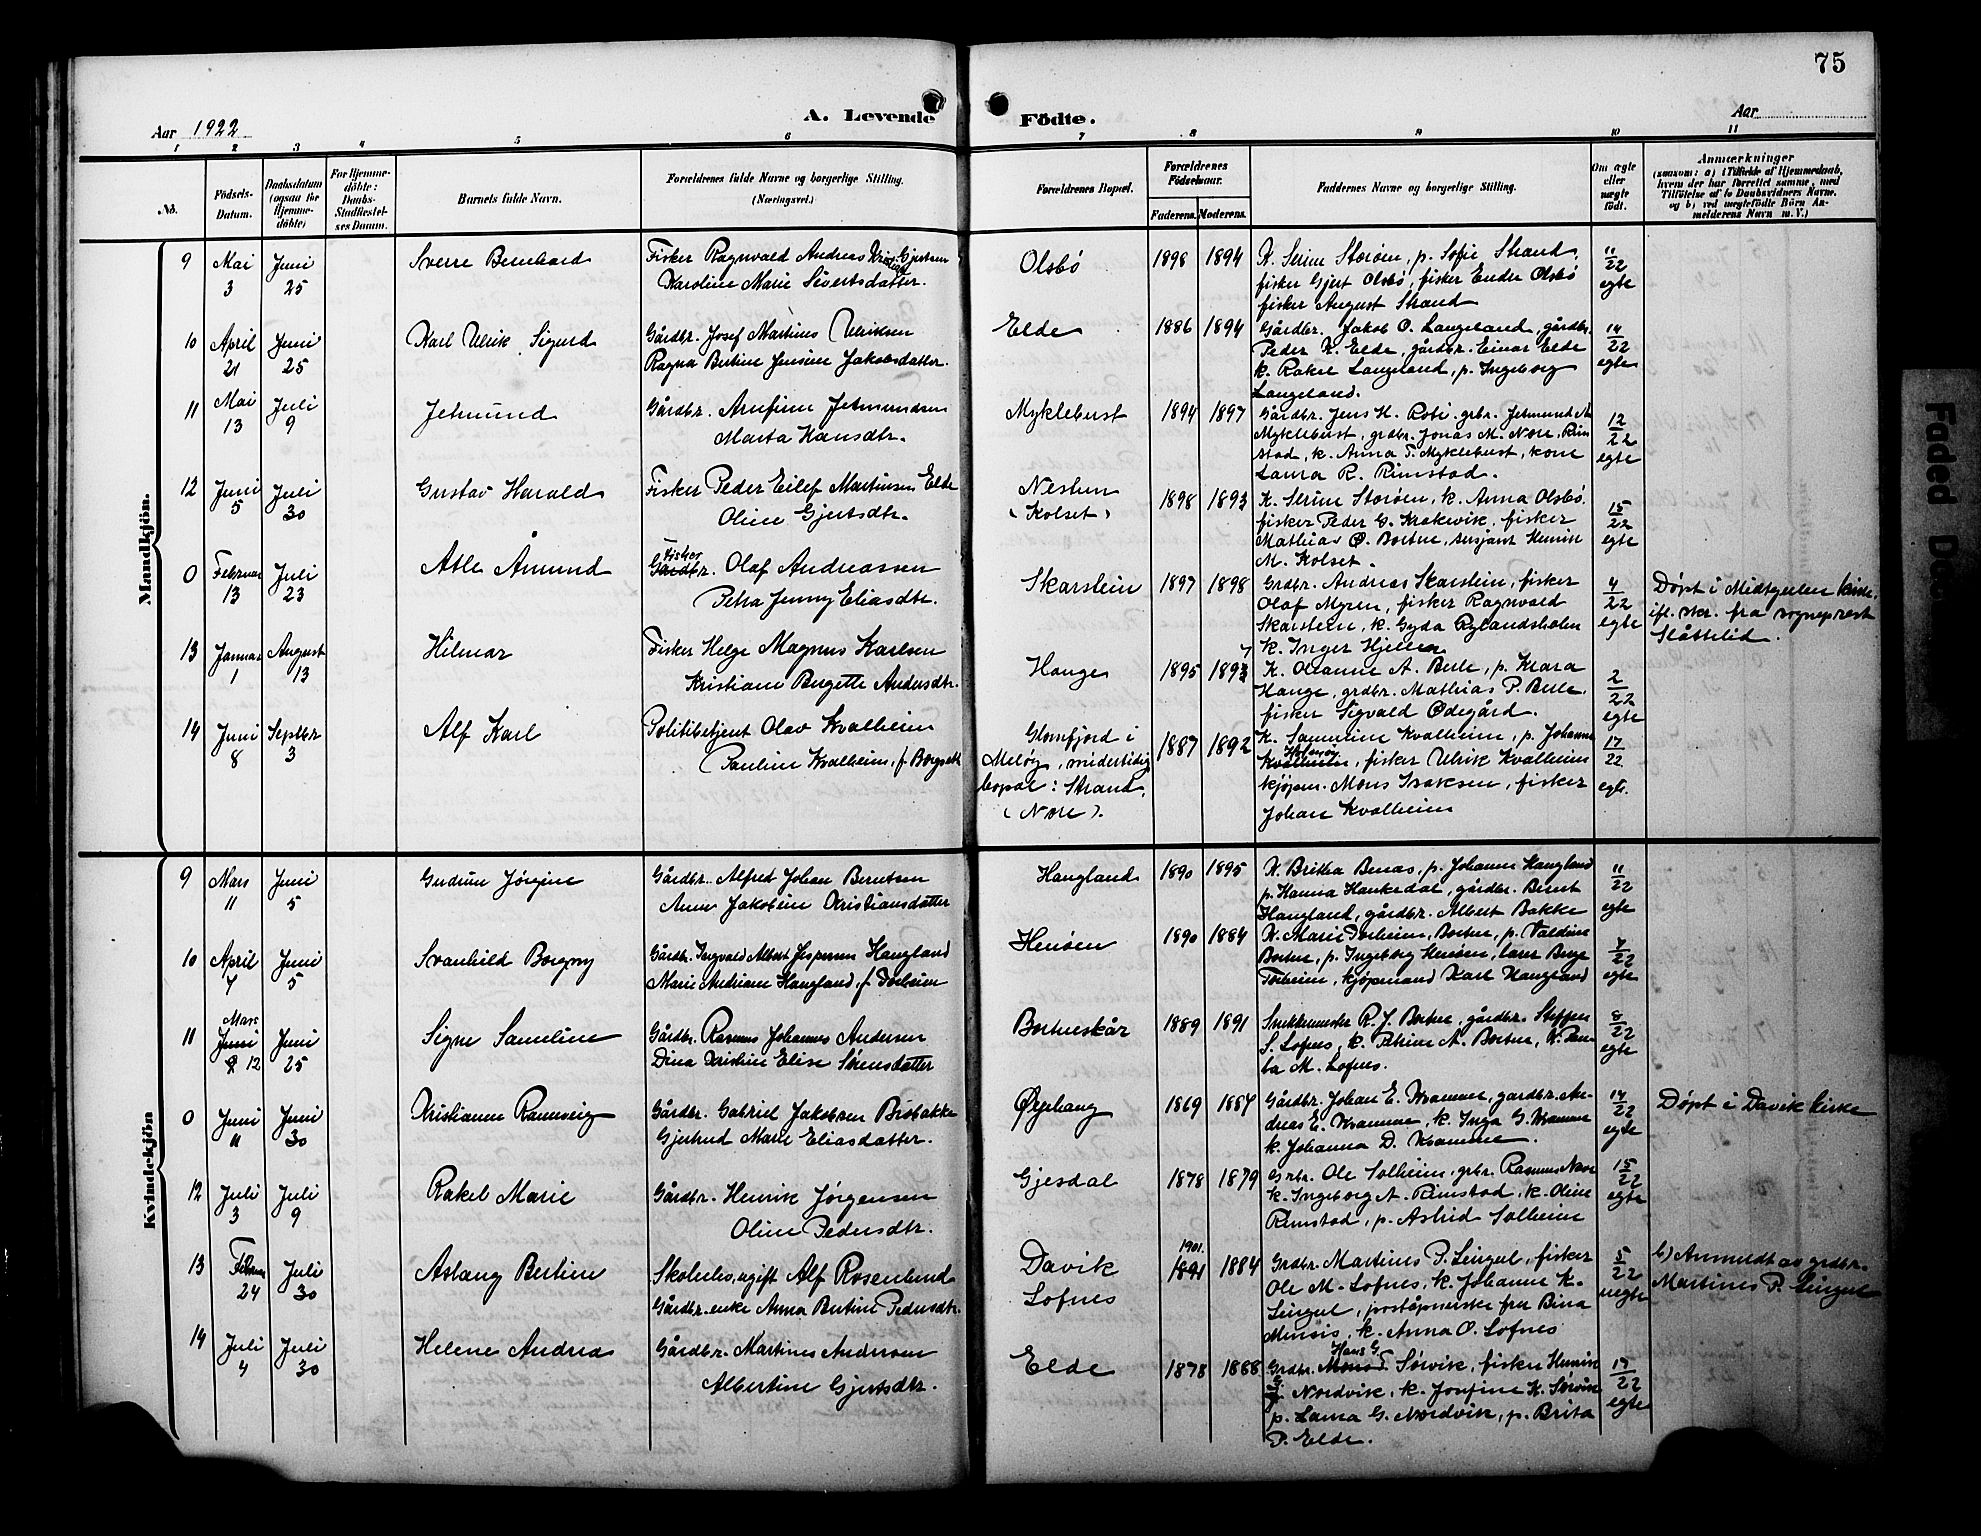 75
Aar 1922
A. Levende Födte.
Aar
1 2 3 4 5 6 7 8 9 10 11
No.
Födsels-Datum.
Daabsdatum (ogsaa for Hjemme-döbte)
For Hjemme-döbte: Daabs-Stadfæstel-ses Datum.
Barnets fulde Navn.
Forældrenes fulde Navne og borgerlige Stilling. (Næringsvei.)
Forældrenes Bopæl.
Forældrenes Födselsaar.
Faderens. Moderens.
Faddernes Navne og borgerlige Stilling.
Om ægte eller uægte födt.
Anmærkninger
(saasom: a) i Tilfælde af Hjemmedaab, hvem der har forrettet samme, med Tilföielse af to Daabsvidners Navne, og b) ved uægtefödte Börn An-melderens Navn m. V.)
Mandkjön.
9 Mai 3 Juni 25 Sverre Bernhard
Fisker Ragnvald Andreas Gjertsen
Karoline Marie Sivertsdatter.
Olsbö 1898 1894
K. Serine Storöen, p. Sofie Strand,
fisker Gjert Olsbö, fisker Endre Olsbö
fisker August Strand
11/22 egte
10 April 21 Juni 25 Karl Ulrik Sigurd
Gårdbr. Josef Martines Ulriksen
Ragna Bertine Jensine Jakobsdatter.
Elde 1886 1894
Gårdbr. Jakob O. Langeland, gårdbr.
Peder K. Elde, gårdbr. Einar Elde
k. Rakel Langeland, p. Ingeborg
Langeland.
14/22 egte
11 Mai 13 Juli 9 Jetmund
Gårdbr. Arnfinn Jetmundsen
Marta Hansdtr.
Myklebust 1894 1897
Gårdbr. Jens H. grbr. Jetmund
Myklebust, grdbr. Jonas M. Nore, Rim
stad, k. Anna T. Myklebust, kone
Laura R. Rimstad.
12/22 egte
12 Juni 5 Juli 30 Gustav Harald
Fisker Peder Eilef Martinsen Elde
Oline Gjertsdtr.
(Kolset) 1898 1893
K. Serine Storöen, k. Anna Olsbö,
fisker Peder G. Krakevik, fisker
Mathias O. Bortne, sersjant Henrik
M. Kolset.
15/22 egte
0 Februar 13 Juli 23 Atle Åmund
Fisker
Gårdbr. Olaf Andreassen
Petra Jenny Eliasdtr.
Skarstein 1897 1898
Grdbr. Andreas Skarstein, fisker
Olaf Myren, fisker Ragnvald
Skarstein, k. Gyda Rylandsholm
k. Inger Hjellen
4/22 egte
Döpt i Midtgulen kirke,
ifl. skr. fra sogneprest
Slåttelid.
13 Januar 1 August 13 Hilmar
Fisker Helge Magnus Karlsen
Kristiane Bergette Andersdtr.
Hauge 1895 1893 7
K. Oleanne A. Berle, p. Klara
Hauge, grdbr. Mathias P. Berle,
fisker Sigvald Ødegård.
2/22 egte
14 Juni 8 Septbr 3 Alf Karl
Politibetjent Olav Kvalheim
Pauline Kvalheim, f.
Glomfjord i
Melöy, midlertidig
bopæl: Strand,
(Nore).
1887 1892
K. Samueline Kvalheim, p. Johanne
Kvalheim, fisker Ulrik Kvalheim
kjöpm. Mons Isaksen, fisker
Johan Kvalheim
17/22 egte
Kvindekjön
9 Mars 11 Juni 5 Gudrun Jörgine
Gårdbr. Alfred Johan Berntsen
Anne Jakobine Kristiansdatter
Haugland 1890 1895
K. Brithe Benas, p. Johanne Haugland
p. Hanna Haukedal, gårdbr. Bernt
Haugland, gårdbr. Albert Bakke
11/22 egte
10 April 7 Juni 5 Svanhild Borgny
Gårdbr. Ingvald Albert Jespersen Haugland
Marie Andriane Haugland, f. Torheim
Henöen 1890 1884
K. Marie Torheim, Bortne, p. Valdine
Bortne, p. Ingeborg Henöen, lærer
Torheim, kjöpmand Karl Haugland
7/22 egte
11 Mars Juni 12 Juni 25 Signe Sameline
Gårdbr. Rasmus Johannes Andersen
Dina Kristine Elise Sörensdatter
Bortneskår 1889 1891
Snekkermester R. J. Bortne, gårdbr. Steffen
S. Lofnes, k. Petrine A. Bortne, K. Pau-
la M. Lofnes.
8/22 egte
0 Juni 11 Juni 30 Kristianne Rannveig
Gårdbr. Gabriel Jakobsen Brobakke
Gjertrud Marie Eliasdatter.
Øyehaug 1869 1884
Gårdbr. Johan E. Kramme, gardbr. An-
dreas E. Kramme, k. Inga G. Kramme
k. Johanna D. Kramme.
14/22 egte
Döpt i Davik kirke
12 Juli 3 Juli 9 Rakel Marie
Gårdbr. Henrik Jörgensen
Oline Pedersdtr.
Gjesdal 1878 1879
Grbr. Ole Solheim, grbr. Rasmus Nave
k. Ingeborg A. Rimstad, k. Oline
Rimstad, p. Astrid Solheim
15/22 egte
13 Februar 24 Juli 30 Aslaug Bertine
ugift Alf Rosenlund
Gårdbr.enke Anna Bertine Pedersdtr.
Davik
Lofnes
1901. 1891 1884
Grdbr. Martines P. Lingul, fisker
Ole M. Lofnes, k. Johanne K.
Lingul, poståpnerske fru Bina
Mensis, k. Anna O. Lofnes
5/22 uegte
b) Anmeldt av grdbr.
Martines P. Lingul
14 Juli 4 Juli 30 Helene Andrea
Gårdbr. Martines Andersen
Albertine Gjertsdtr.
Elde 1878 1888
Hans G.
Grdbr. Sörvik, fisker Henrik
Nordvik, k. Josefine K. Sörvik
p. Laura G. Nordvik, p. Brita
P. Elde.
17/22 egte
Faded Doc